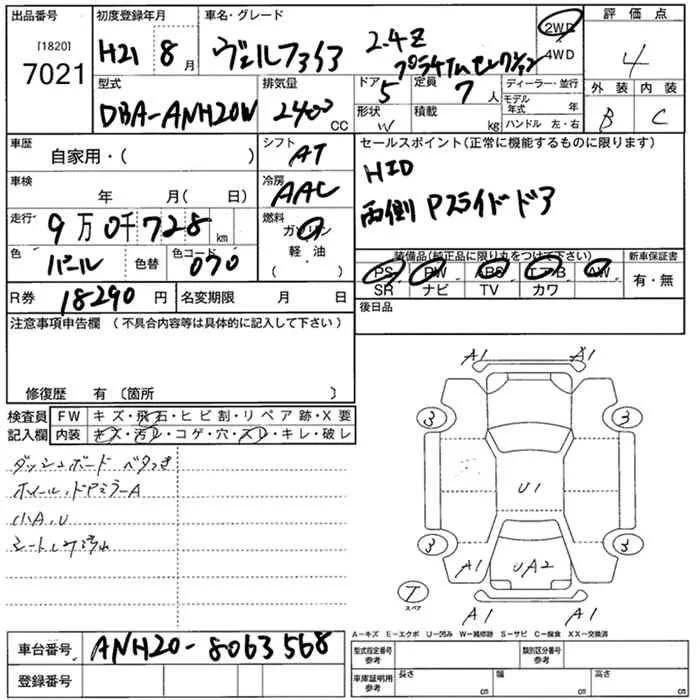 出品番号 初度登録年月 車名・グレード 評価点
[1820]
7021
H21 8月 ヴェルファイア 2.4Z プラチナムセレクション 2WD 4WD 4
型式 排気量 ドア 定員 ディーラー・並行 外装 内装
DBA-ANH20W 2400 CC 5 7人 モデル年式 年 B C
形状 W 積載 kg ハンドル 左・右
車歴 シフト セールスポイント(正常に機能するものに限ります)
自家用・( ) AT HID
車検 冷房 両側Pスライドドア
年 月(日) AAC
走行 燃料
9万0千728km ガソリン 軽油
色 色コード 装備品(純正品に限り丸をつけて下さい) 新車保証書
パール 色替 070 ( ) PS PW ABS エアB AW 有・無
SR ナビ TV カワ
R券 18290円 名変期限 月 日 後日品
注意事項申告欄(不具合内容等は具体的に記入して下さい)
修復歴 有〔箇所 〕
検査員 FW キズ・飛石・ヒビ割・リペア跡・X要
記入欄 内装 キズ・汚レ・コゲ・穴・スレ・キレ・破レ
ダッシュボード ベタつき
ホイール、ドアミラーA
小A、U
シートルワ汚れ
A1 A1
3 3
U1
3 3
A1 UA2 A1
T
スペア
A1 A1
A-キズ E-エクボ U-凹み W-補修跡 S-サビ C-腐食 XX-交換済
車台番号 ANH20-8063568 型式指定番号 参考 類別区分番号 参考
登録番号 車庫証明用 参考 長さ cm 幅 cm 高さ cm